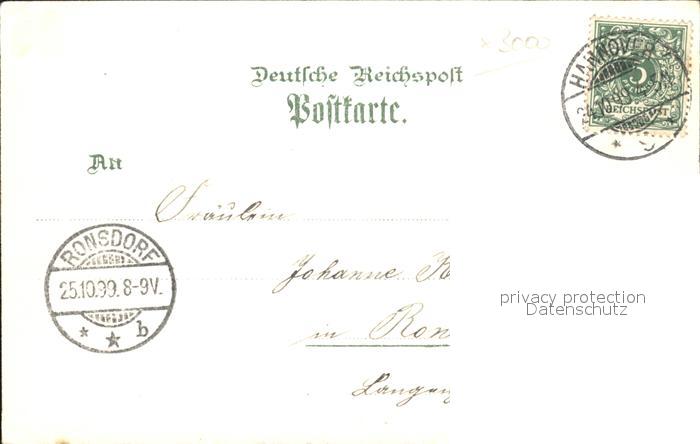 × 3000
Deutsche Reichspost
Postkarte.
HANNOVER
5
REICHSPOST
An
Fräulein
Johanne K
in Ron
Langen
RONSDORF
25.10.99. 8-9V.
* * b
privacy protection
Datenschutz